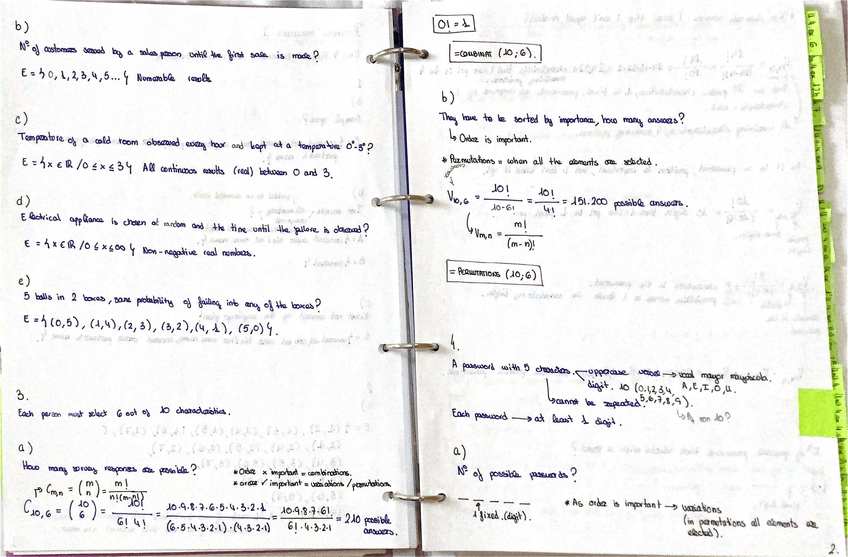 b)
Nº of customers served by a sales person until the first sale is made?
E = { 0, 1, 2, 3, 4, 5... } Numerable results
c)
Temperature of a cold room observed every hour and kept at a temperature 0°-3°?
E = { x ∈ ℝ / 0 ≤ x ≤ 3 } All continuous results (real) between 0 and 3.
d)
Electrical appliance is chosen at random and the time until the failure is observed?
E = { x ∈ ℝ / 0 ≤ x ≤ ∞ } Non-negative real numbers.
e)
5 balls in 2 boxes, same probability of falling into any of the boxes?
E = { (0,5), (1,4), (2,3), (3,2), (4,1), (5,0) }.
3.
Each person must select 6 out of 10 characteristics.
a)
How many survey responses are possible?
* Order x important = combinations.
* order ✓ important = variations / permutations
Cm,n = (m n) = m! / n!(m-n)!
C10,6 = (10 6) = 10! / 6! 4! = 10·9·8·7·6·5·4·3·2·1 / (6·5·4·3·2·1)·(4·3·2·1) = 10·9·8·7·6! / 6!·4·3·2·1 = 210 possible answers.
0! = 1
= COMBINAT (10; 6).
b)
They have to be sorted by importance, how many answers?
↳ Order is important.
* Permutations = when all the elements are selected.
V10,6 = 10! / 10-6! = 10! / 4! = 151.200 possible answers.
↳ Vm,n = m! / (m-n)!
= PERMUTATIONS (10; 6)
4.
A password with 5 characters. uppercase vowel → vocal mayor mayúscula.
digit. 10 (0,1,2,3,4, A, E, I, O, U.
5,6,7,8,9).
↳ cannot be repeated.
Each password → at least 1 digit.
a)
Nº of possible passwords?
_ _ _ _ _
1 fixed. (digit).
* As order is important → variations
(in permutations all elements are
selected).
2.